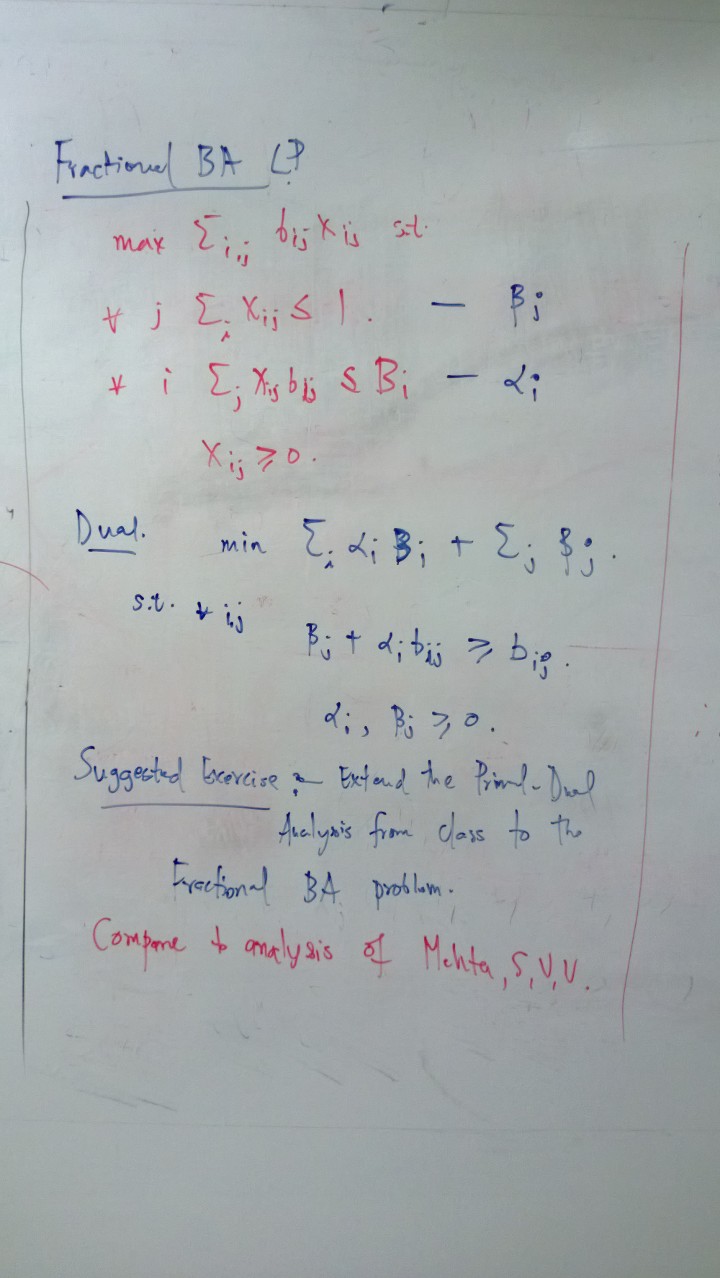 Fractional BA LP
max Σ_{i,j} b_{ij} x_{ij} s.t.
∀ j Σ_i x_{ij} ≤ 1. — β_j
∀ i Σ_j x_{ij} b_{ij} ≤ B_i — α_i
x_{ij} ≥ 0.
Dual. min Σ_i α_i B_i + Σ_j β_j.
s.t. ∀ ij
β_j + α_i b_{ij} ≥ b_{ij}.
α_i, β_j ≥ 0.
Suggested Exercise :- Extend the Primal-Dual
Analysis from class to the
Fractional BA problem.
Compare to analysis of Mehta, S, V, V.